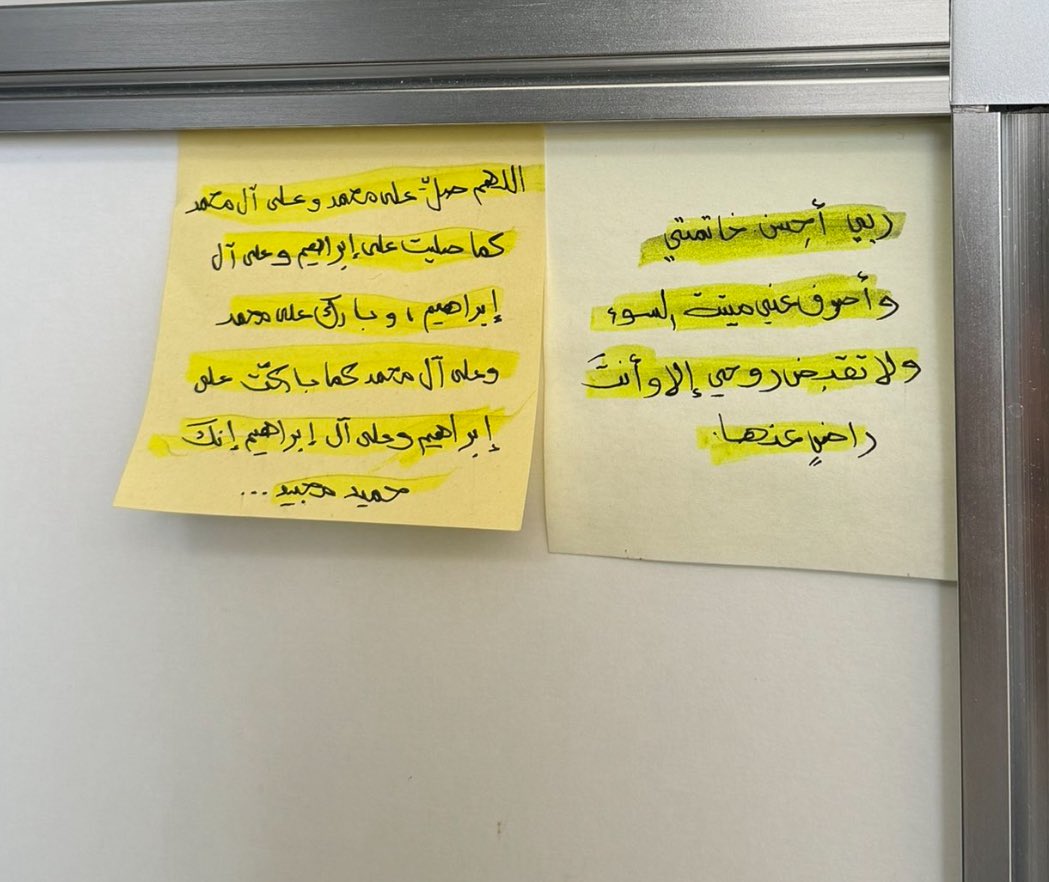 ربي أحسن خاتمتي
وأصرف عني ميتت السوء
ولا تقبض روحي إلا وأنتَ
راضيٍ عنها.
اللهم صلّ على محمد وعلى آل محمد
كما صليت على إبراهيم وعلى آل
إبراهيم ، وبارك على محمد
وعلى آل محمد كما باركت على
إبراهيم وعلى آل إبراهيم إنك
حميد مجيد ...